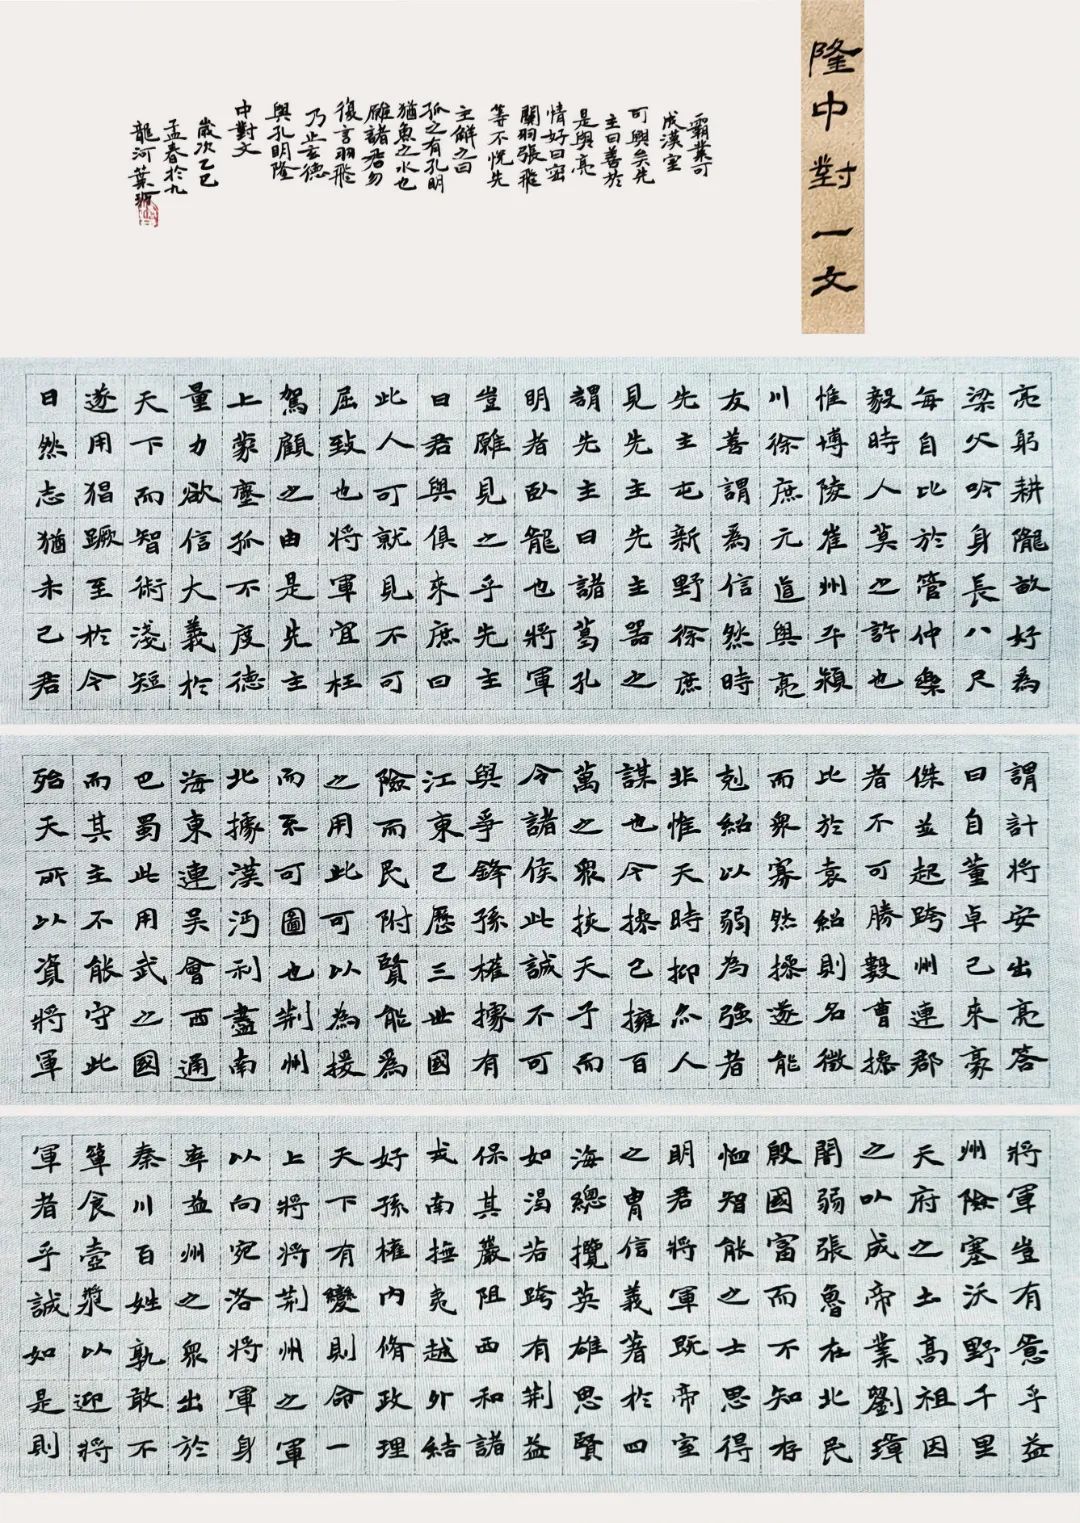 隆中對一文
亮躬耕隴畝好為
梁父吟身長八尺
每自比於管仲樂
毅時人莫之許也
惟博陵崔州平潁
川徐庶元直與亮
友善謂為信然時
先主屯新野徐庶
見先主先主器之
謂先主曰諸葛孔
明者臥龍也將軍
豈願見之乎先主
曰君與俱來庶曰
此人可就見不可
屈致也將軍宜枉
駕顧之由是先主
上蒙塵孤不度德
量力欲信大義於
天下而智術淺短
遂用猖蹶至於今
日然志猶未已君
謂計將安出亮答
曰自董卓已來豪
傑並起跨州連郡
者不可勝數曹操
比於袁紹則名微
而眾寡然操遂能
剋紹以弱為強者
非惟天時抑亦人
謀也今操已擁百
萬之眾挾天子而
令諸侯此誠不可
與爭鋒孫權據有
江東已歷三世國
險而民附賢能為
之用此可以為援
而系可圖也荊州
北據漢沔利盡南
海東連吳會西通
巴蜀此用武之國
而其主不能守此
殆天所以資將軍
將軍豈有意乎益
州險塞沃野千里
天府之土高祖因
之以成帝業劉璋
闇弱張魯在北民
殷國富而不知存
恤智能之士思得
明君將軍既帝室
之胄信義著於四
海總攬英雄思賢
如渴若跨有荊益
保其巖阻西和諸
戎南撫夷越外結
好孫權內脩政理
天下有變則命一
上將將荊州之軍
以向宛洛將軍身
率益州之眾出於
秦川百姓孰敢不
簞食壺漿以迎將
軍者乎誠如是則
霸業可
成漢室
可興矣先
主曰善於
是與亮
情好日密
關羽張飛
等不悅先
主解之曰
孤之有孔明
猶魚之水也
願諸君勿
復言羽飛
乃止玄德
與孔明隆
中對文
歲次乙巳
孟春於九
龍河葉